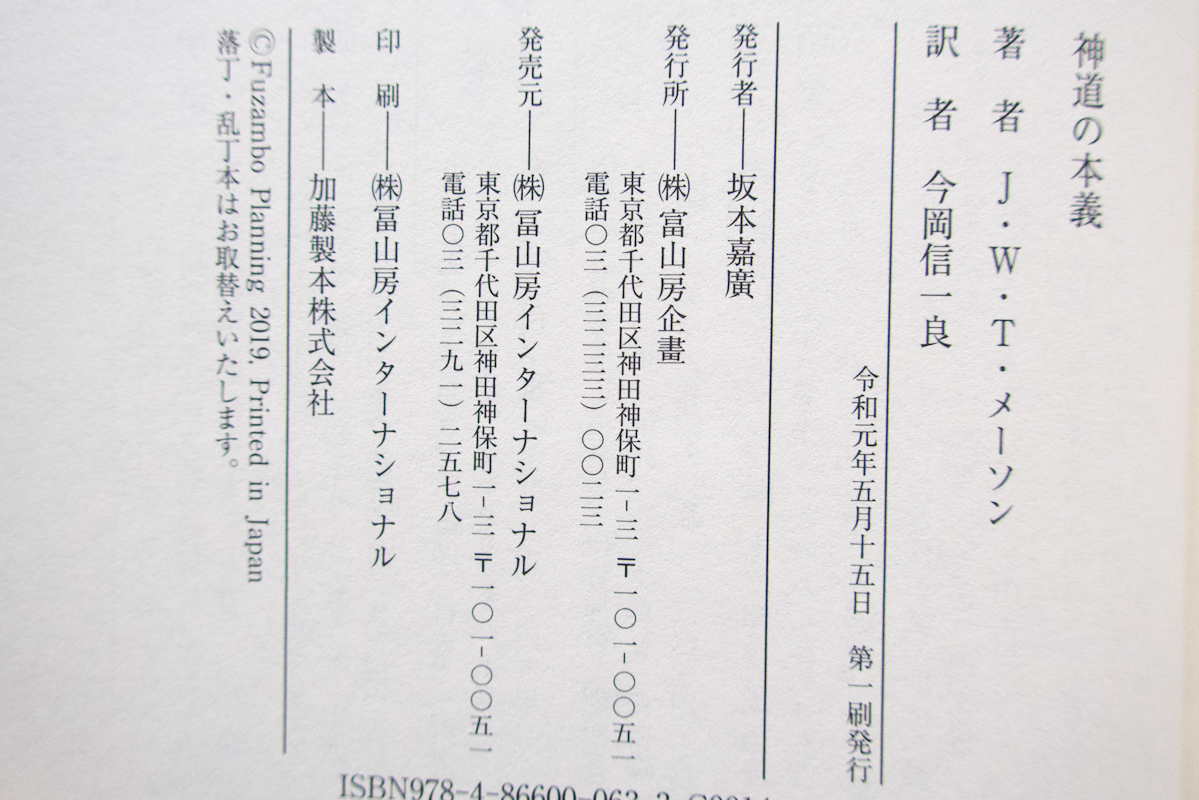 神道の本義
著者 J・W・T・メーソン
訳者 今岡信一良
令和元年五月十五日 第一刷発行
発行者――坂本嘉廣
発行所――㈱冨山房企畫
東京都千代田区神田神保町一-三 〒一〇一-〇〇五一
電話〇三(三二三三)〇〇二三
発売元――㈱冨山房インターナショナル
東京都千代田区神田神保町一-三 〒一〇一-〇〇五一
電話〇三(三二九一)二五七八
印刷――㈱冨山房インターナショナル
製本――加藤製本株式会社
©Fuzambo Planning 2019. Printed in Japan
落丁・乱丁本はお取替えいたします。
ISBN978-4-86600-06